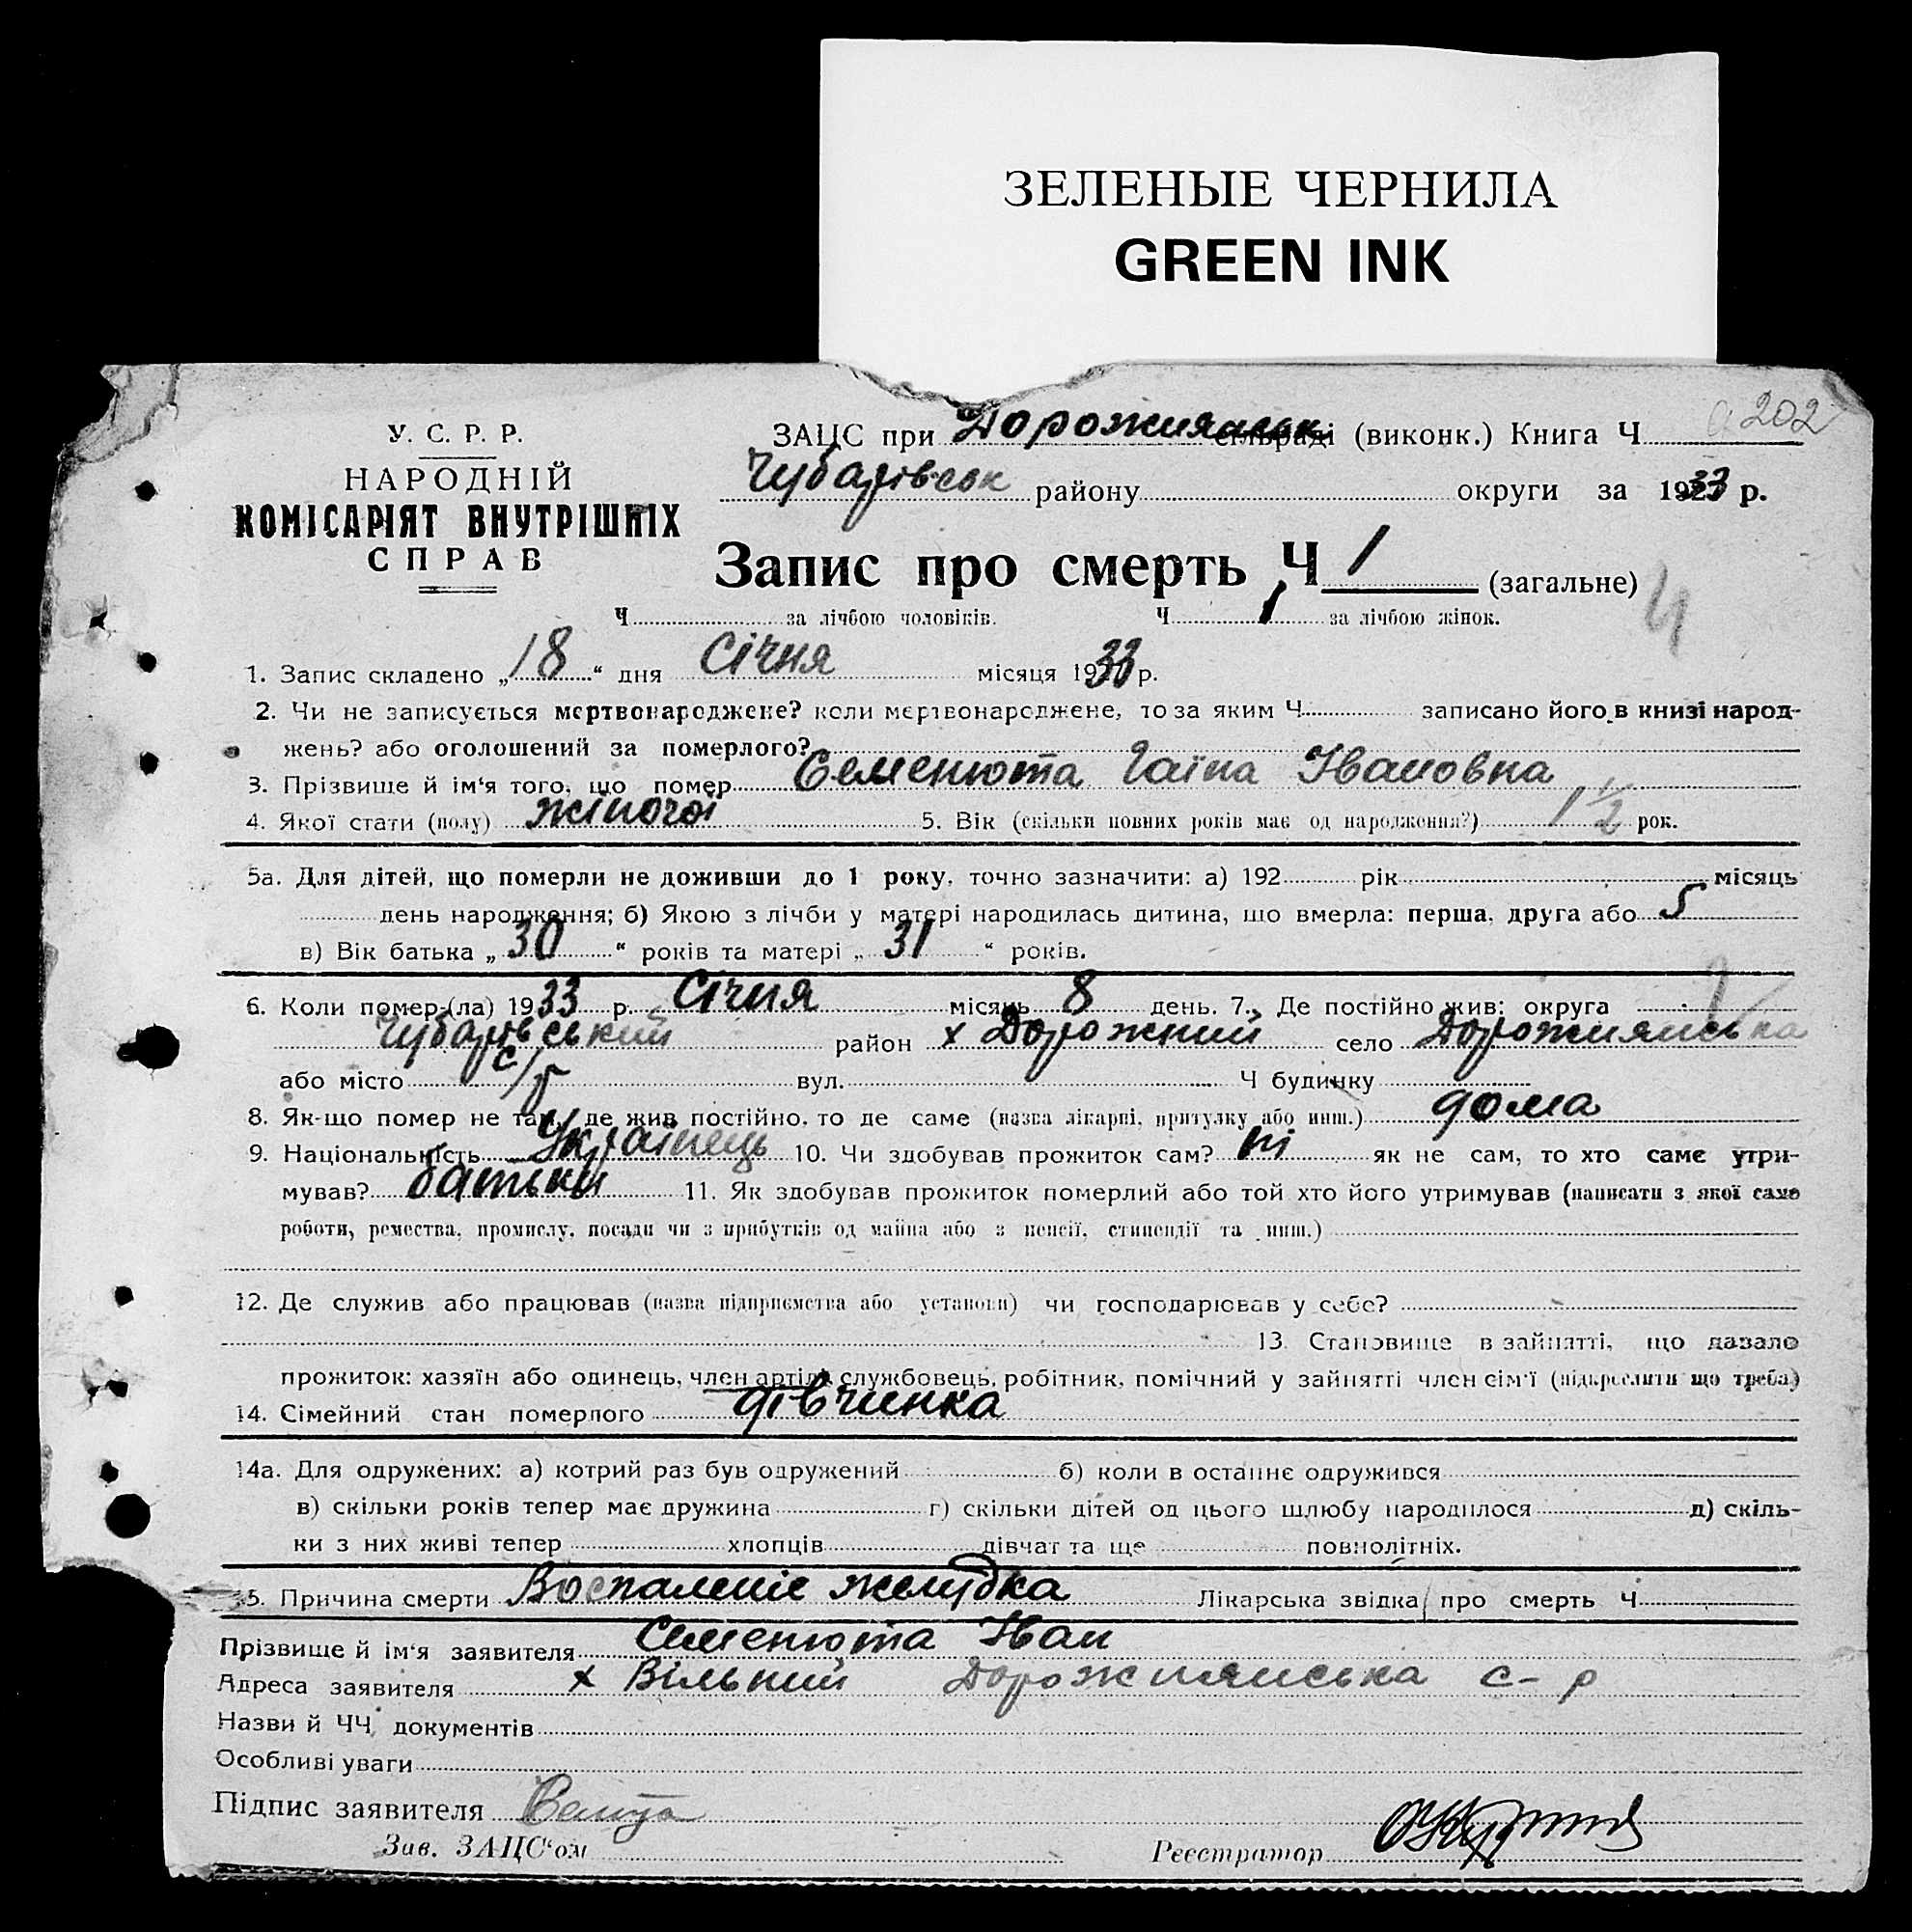 ЗЕЛЕНЫЕ ЧЕРНИЛА
GREEN INK
202
У. С. Р. Р.
НАРОДНІЙ
КОМІСАРІЯТ ВНУТРІШНІХ
СПРАВ
ЗАЦС при Дорожнянськ сільраді (виконк.) Книга Ч
Чубарівськ району округи за 1933 р.
Запис про смерть Ч 1 (загальне)
4
Ч за лічбою чоловіків. Ч 1 за лічбою жінок.
1. Запис складено „18“ дня Січня місяця 1933 р.
2. Чи не записується мертвонароджене? коли мертвонароджене, то за яким Ч записано його в книзі народ-
жень? або оголошений за померлого?
3. Прізвище й ім‘я того, що помер Семенюта Ганна Івановна
4. Якої стати (полу) жіночої 5. Вік (скільки повних років має од народження?) 1 1/2 рок.
5а. Для дітей, що померли не доживши до 1 року, точно зазначити: а) 192 рік місяць
день народження; б) Якою з лічби у матері народилась дитина, що вмерла: перша, друга або 5
в) Вік батька „30“ років та матері „31“ років.
6. Коли помер-(ла) 1933 р. Січня місяць 8 день. 7. Де постійно жив: округа
Чубарівський район х Дорожний село Дорожнянська
або місто с/р вул. Ч будинку
8. Як-що помер не там, де жив постійно, то де саме (назва лікарні, притулку або инш.) дома
9. Національність Українець 10. Чи здобував прожиток сам? ні як не сам, то хто саме утри-
мував? батьки 11. Як здобував прожиток померлий або той хто його утримував (написати з якої саме
роботи, ремества, промислу, посади чи з прибутків од майна або з пенсії, стипендії та инш.)
12. Де служив або працював (назва підприємства або установи) чи господарював у себе?
13. Становище в зайнятті, що давало
прожиток: хазяїн або одинець, член артілі, службовець, робітник, помічний у зайнятті член сім‘ї (підкреслити що треба)
14. Сімейний стан померлого дівчинка
14а. Для одружених: а) котрий раз був одружений б) коли в останнє одружився
в) скільки років тепер має дружина г) скільки дітей од цього шлюбу народилося д) скіль-
ки з них живі тепер хлопців дівчат та ще повнолітніх.
15. Причина смерти Воспаленіе желудка Лікарська звідка про смерть Ч
Прізвище й ім‘я заявителя Семенюта Іван
Адреса заявителя х Вільний Дорожнянська с-р
Назви й ЧЧ документів
Особливі уваги
Підпис заявителя
Зав. ЗАЦС‘ом Реєстратор